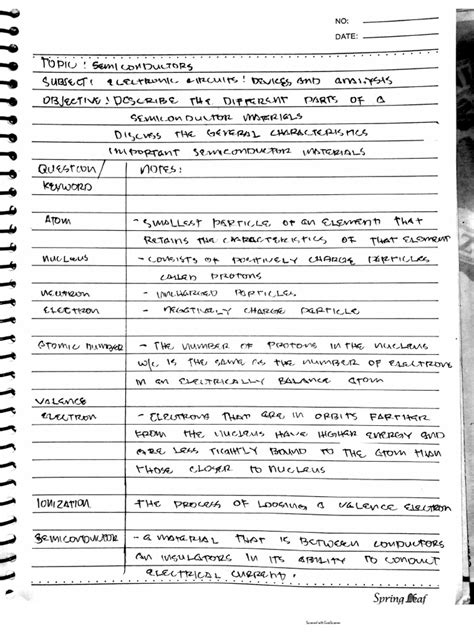 NO:
DATE:
TOPIC: SEMICONDUCTORS
SUBJECT: ELECTRONIC CIRCUITS: DEVICES AND ANALYSIS
OBJECTIVE: DESCRIBE THE DIFFERENT PARTS OF A
SEMICONDUCTOR MATERIALS
DISCUSS THE GENERAL CHARACTERISTICS
IMPORTANT SEMICONDUCTOR MATERIALS
QUESTION/ NOTES:
KEYWORD
ATOM - SMALLEST PARTICLE OF AN ELEMENT THAT
RETAINS THE CHARACTERISTICS OF THAT ELEMENT
NUCLEUS - CONSISTS OF POSITIVELY CHARGE PARTICLES
CALLED PROTONS
NEUTRON - UNCHARGED PARTICLES
ELECTRON - NEGATIVELY CHARGE PARTICLE
ATOMIC NUMBER - THE NUMBER OF PROTONS IN THE NUCLEUS
W/C IS THE SAME AS THE NUMBER OF ELECTRONS
IN AN ELECTRICALLY BALANCE ATOM
VALENCE
ELECTRON - ELECTRONS THAT ARE IN ORBITS FARTHER
FROM THE NUCLEUS HAVE HIGHER ENERGY AND
ARE LESS TIGHTLY BOUND TO THE ATOM THAN
THOSE CLOSER TO NUCLEUS
IONIZATION THE PROCESS OF LOOSING A VALENCE ELECTRON
SEMICONDUCTOR - A MATERIAL THAT IS BETWEEN CONDUCTORS
AN INSULATORS IN ITS ABILITY TO CONDUCT
ELECTRICAL CURRENT.
Spring Leaf
Scanned with CamScanner